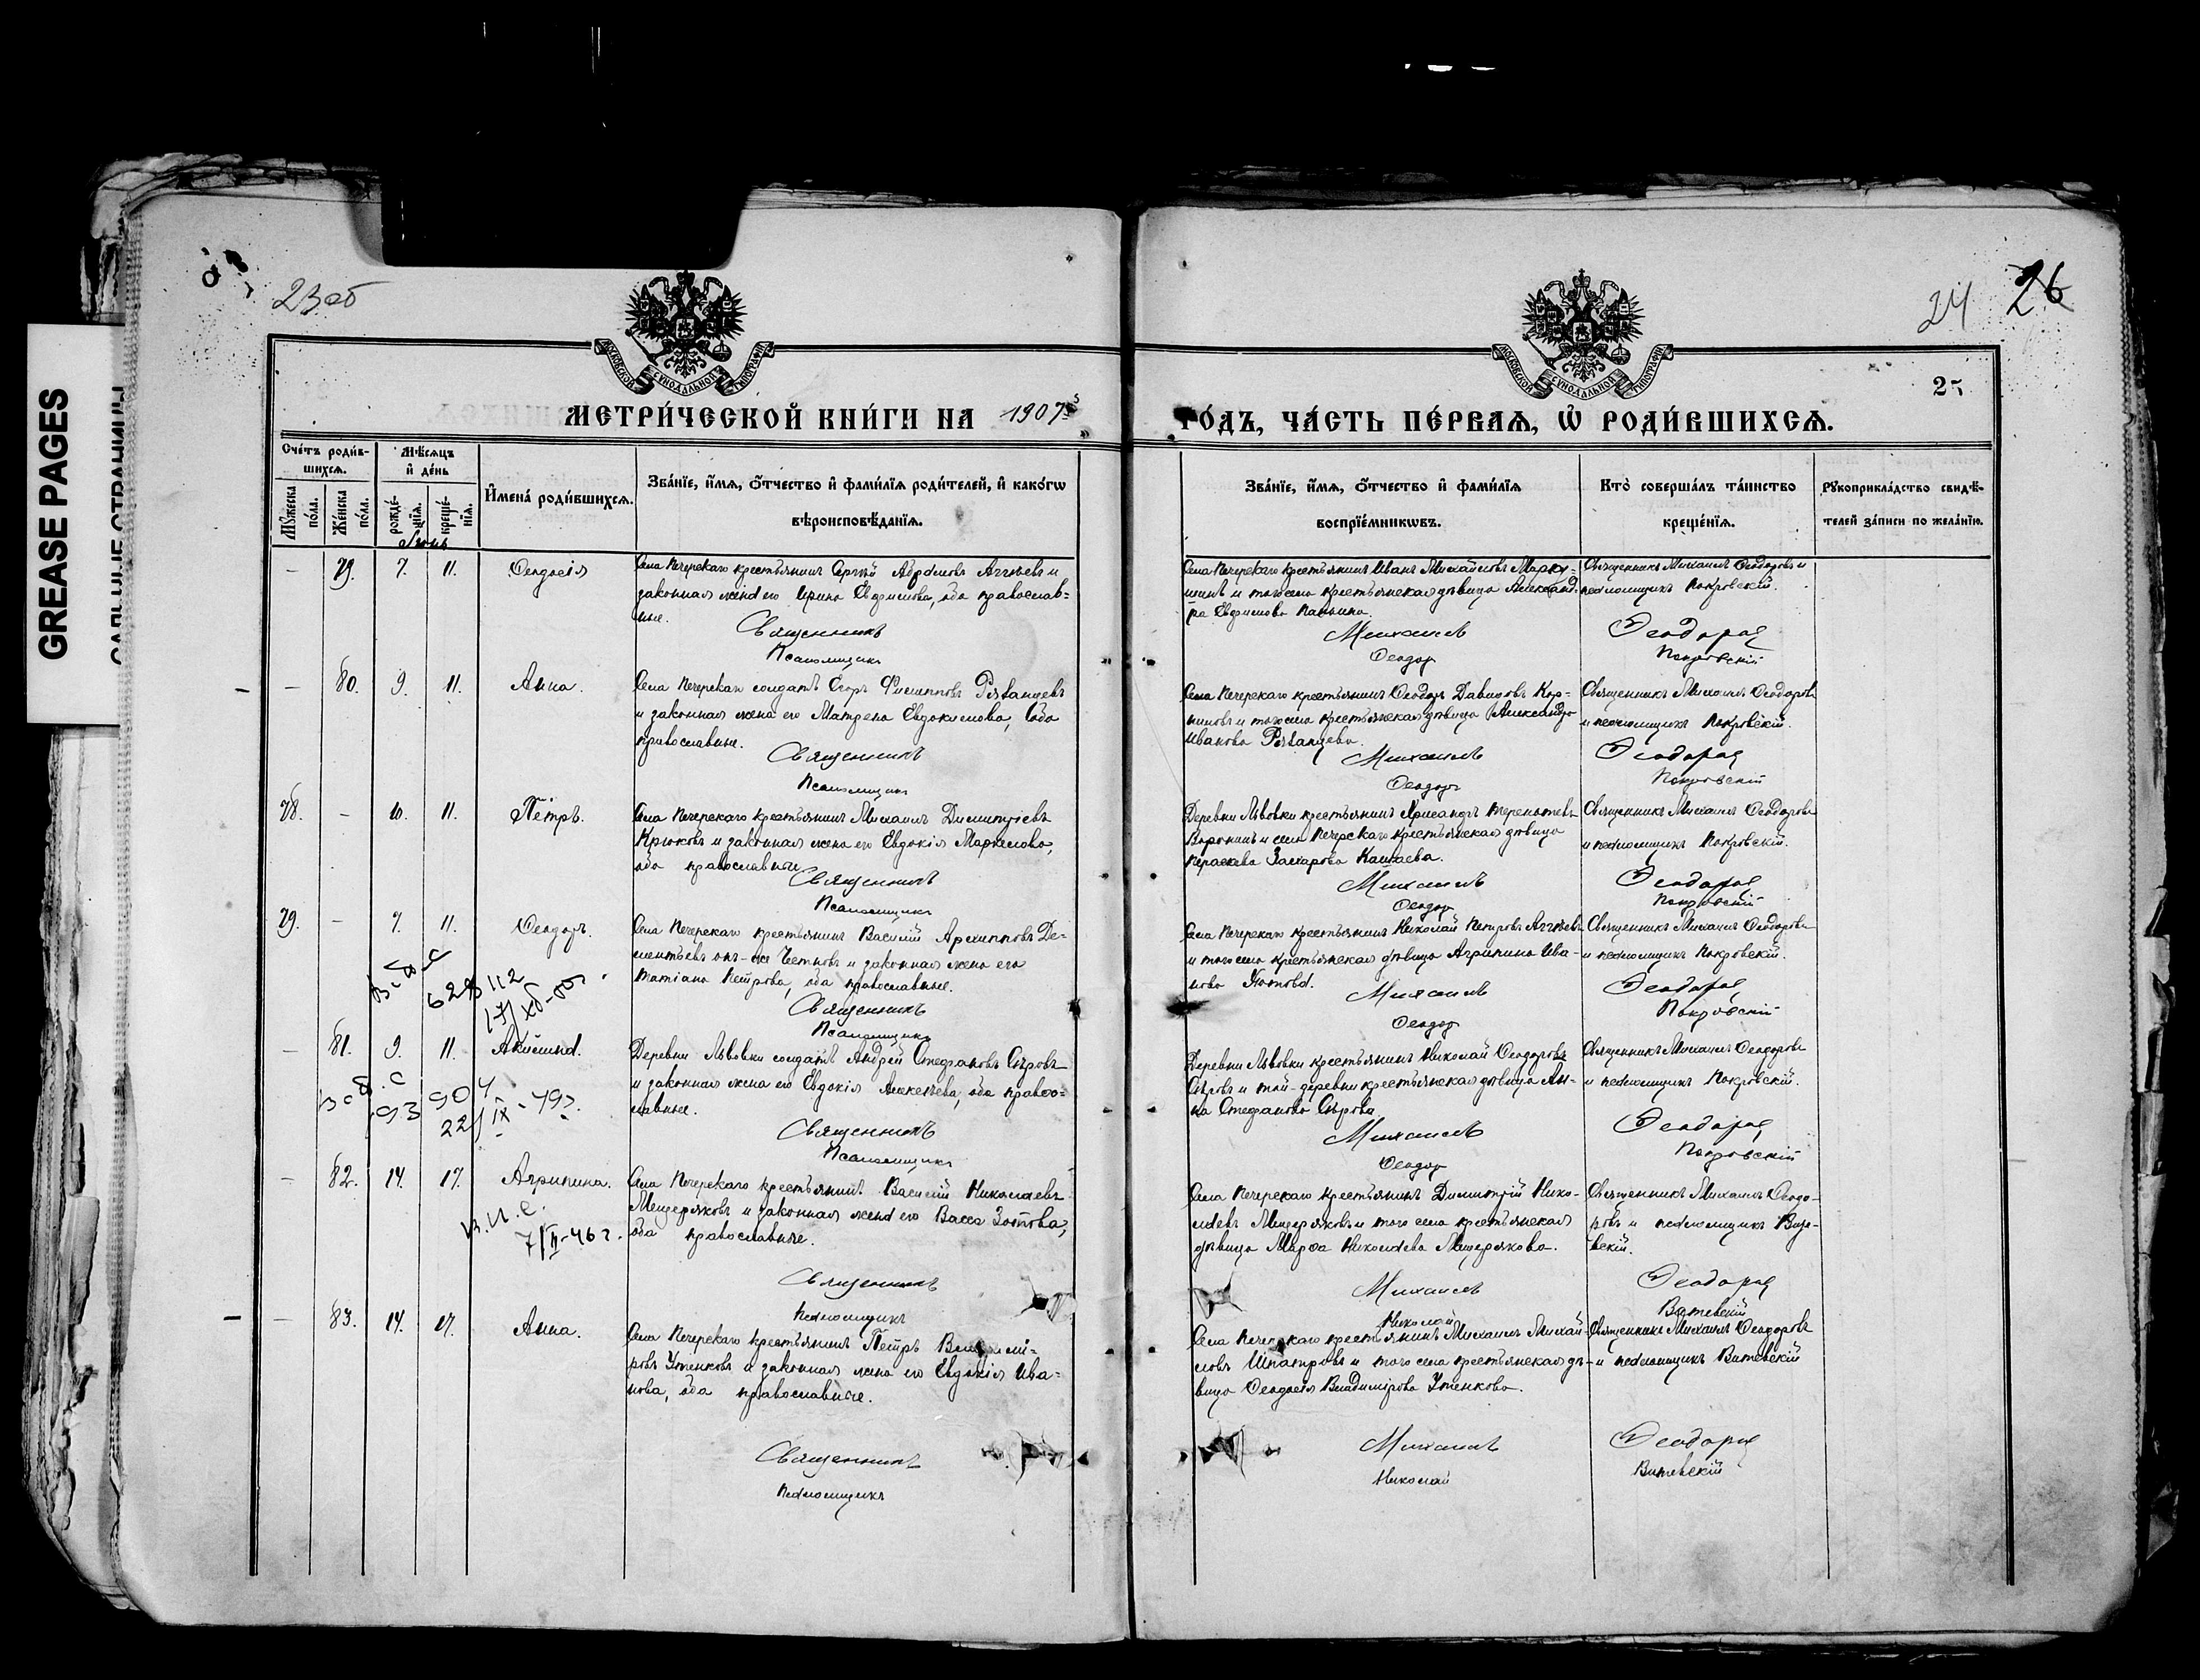 GREASE PAGES
23об
24
26
МОСКОВСКОЙ СУНОДАЛЬНОЙ ТИПОГРАФІИ
МОСКОВСКОЙ СУНОДАЛЬНОЙ ТИПОГРАФІИ
МЕТРИ́ЧЕСКОЙ КНИ́ГИ НА 1907й
ГО́ДЪ, ЧА́СТЬ ПЕ́РВАѦ, Ѡ҆ РОДИ́ВШИХСѦ.
Сче́тъ роди́в-
шихсѧ.
Мꙋ́жеска по́ла.
Же́нска по́ла.
Мѣ́сѧцъ
и҆ де́нь
рожде́-
нїѧ.
креще́-
нїѧ.
Іюнь
И҆мена̀ роди́вшихсѧ.
Зва́нїе, и҆́мѧ, ѻ҆́тчество и҆ фами́лїѧ роди́телей, и҆ како́гѡ
вѣроисповѣ́данїѧ.
Зва́нїе, и҆́мѧ, ѻ҆́тчество и҆ фами́лїѧ
воспрїе́мникѡвъ.
Кто̀ соверша́лъ та́инство
креще́нїѧ.
Рꙋкоприкла́дство свидѣ́-
телей за́писи по жела́нїю.
– 79. 7. 11. Ѳеодосія
Села Печерскаго крестьянинъ Сергѣй Абрамовъ Аггѣевъ и
законная жена его Ирина Евфимова, оба православ-
ные.
Священникъ
Псаломщикъ
Села Печерскаго крестьянинъ Иванъ Михайловъ Марку-
шинъ и того села крестьянская дѣвица Александ-
ра Евфимова Панина.
Михаилъ
Ѳеодоръ
Священникъ Михаилъ Ѳеодоровъ и
псаломщикъ Покровскій.
Ѳеодоровъ
Покровскій
– 80. 9. 11. Анна.
Села Печерскаго солдатъ Егоръ Филипповъ Рязанцевъ
и законная жена его Матрена Евдокимова, оба
православные.
Священникъ
Псаломщикъ
Села Печерскаго крестьянинъ Ѳеодоръ Давидовъ Кор-
ниловъ и того села крестьянская дѣвица Александра
Иванова Рязанцева.
Михаилъ
Ѳеодоръ
Священникъ Михаилъ Ѳеодоровъ
и псаломщикъ Покровскій.
Ѳеодоровъ
Покровскій
78. – 10. 11. Петръ.
Села Печерскаго крестьянинъ Михаилъ Димитріевъ
Крюковъ и законная жена его Евдокія Маркелова,
оба православные.
Священникъ
Псаломщикъ
Деревни Львовки крестьянинъ Хрисанфъ Терентьевъ
Воронинъ и села Печерскаго крестьянская дѣвица
Параскева Захарова Кашаева.
Михаилъ
Ѳеодоръ
Священникъ Михаилъ Ѳеодоровъ
и псаломщикъ Покровскій.
Ѳеодоровъ
Покровскій
79. – 7. 11. Ѳеодоръ.
Села Печерскаго крестьянинъ Василій Архипповъ Де-
ментьевъ онъ-же Четновъ и законная жена его
Татіана Петрова, оба православные.
Священникъ
Псаломщикъ
Села Печерскаго крестьянинъ Николай Петровъ Аггѣевъ
и того села крестьянская дѣвица Агрипина Ива-
нова Утова.
Михаилъ
Ѳеодоръ
Священникъ Михаилъ Ѳеодоровъ
и псаломщикъ Покровскій.
Ѳеодоровъ
Покровскій
– 81. 9. 11. Акилина.
22/IX-49г.
Деревни Львовки солдатъ Андрей Стефановъ Сѣровъ
и законная жена его Евдокія Алексѣева, оба право-
славные.
Священникъ
Псаломщикъ
Деревни Львовки крестьянинъ Николай Ѳеодоровъ
Сѣровъ и той-деревни крестьянская дѣвица Ан-
на Стефанова Сѣрова.
Михаилъ
Ѳеодоръ
Священникъ Михаилъ Ѳеодоровъ
и псаломщикъ Покровскій.
Ѳеодоровъ
Покровскій
– 82. 14. 17. Агрипина.
7/II-46 г.
Села Печерскаго крестьянинъ Василій Николаевъ
Мещеряковъ и законная жена его Васса Зотова,
оба православные.
Священникъ
Псаломщикъ
Села Печерскаго крестьянинъ Димитрій Нико-
лаевъ Мещеряковъ и того села крестьянская
дѣвица Марѳа Николаева Мещерякова.
Михаилъ
Николай
Священникъ Михаилъ Ѳеодо-
ровъ и псаломщикъ Вите-
вскій.
Ѳеодоровъ
Витевскій
– 83. 14. 17. Анна.
Села Печерскаго крестьянинъ Петръ Владимі-
ровъ Утенковъ и законная жена его Евдокія Ива-
нова, оба православные.
Священникъ
Псаломщикъ
Села Печерскаго крестьянинъ Михаилъ Михай-
ловъ Шпатровъ и того села крестьянская дѣ-
вица Ѳеодосія Владимірова Утенкова.
Михаилъ
Николай
Священникъ Михаилъ Ѳеодоровъ
и псаломщикъ Витевскій
Ѳеодоровъ
Витевскій